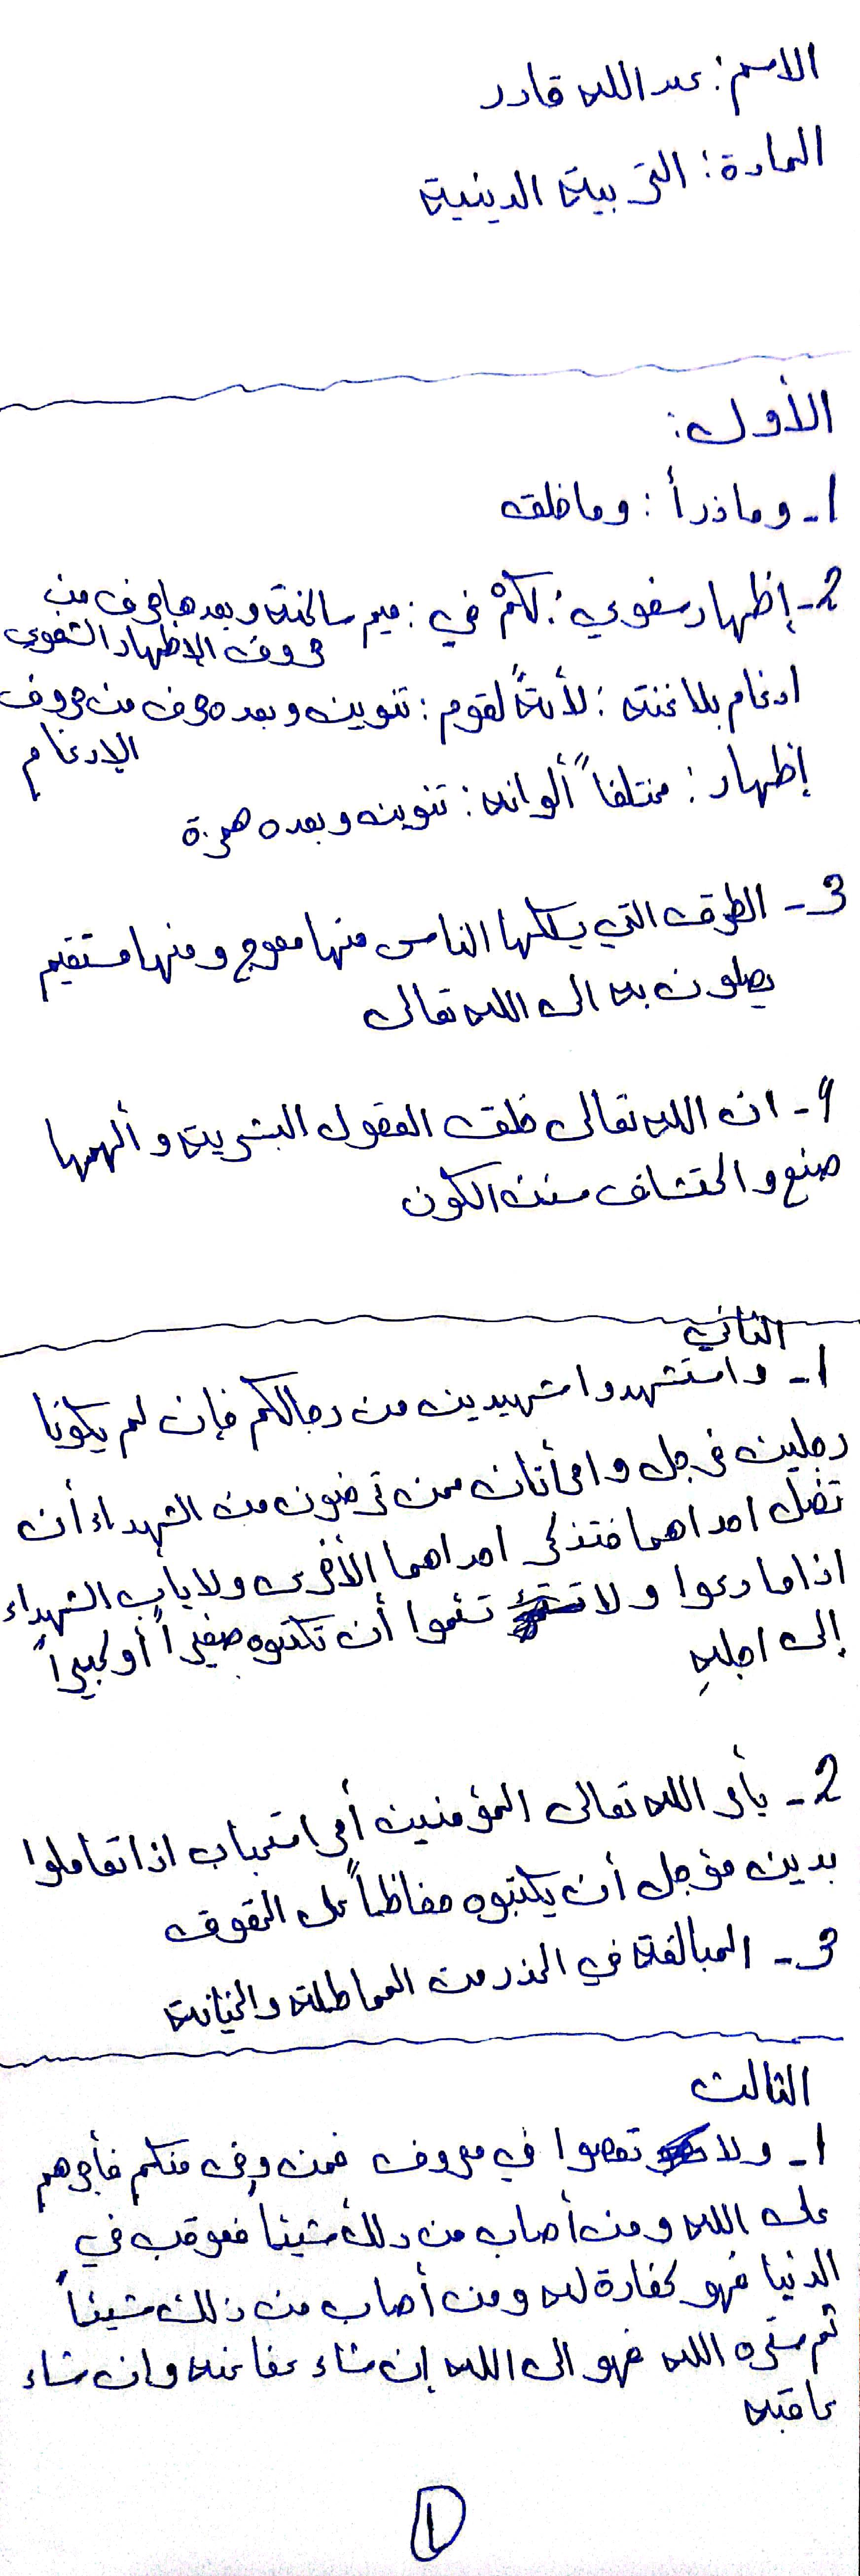 الاسم: عبدالله قادر
المادة: التربية الدينية
الأول:
1- وما ذرأ: وما خلق
2- إظهار شفوي: لكمْ في: ميم ساكنة وبعدها حرف من
حروف الاظهار الشفوي
ادغام بلا غنة: لأيةً لقوم: تنوين وبعده حرف من حروف
الإدغام
إظهار: مختلفاً ألوانه: تنوين وبعده همزة
3- الطرق التي يسلكها الناس منها معوج ومنها مستقيم
يصلون به الى الله تعالى
4- ان الله تعالى خلق العقول البشرية وألهمها
صنع واكتشاف سنن الكون
الثاني
1- واستشهدوا شهيدين من رجالكم فإن لم يكونا
رجلين فرجل وامرأتان ممن ترضون من الشهداء أن
تضل احداهما فتذكر احداهما الأخرى ولا يأب الشهداء
اذا ما دعوا ولا تسئموا أن تكتبوه صغيراً أو كبيراً
إلى اجلهِ
2- يأمر الله تعالى المؤمنين أمر استحباب اذا تعاملوا
بدين مؤجل أن يكتبوه حفاظاً على الحقوق
3- المبالغة في الحذر من المماطلة والخيانة
الثالث
1- ولا تعصوا في معروف فمن وفى منكم فأجرهم
على الله ومن أصاب من ذلك شيئاً فعوقب في
الدنيا فهو كفارة له ومن أصاب من ذلك شيئاً
ثم ستره الله فهو الى الله إن شاء عفا عنه وان شاء
عاقبه
1